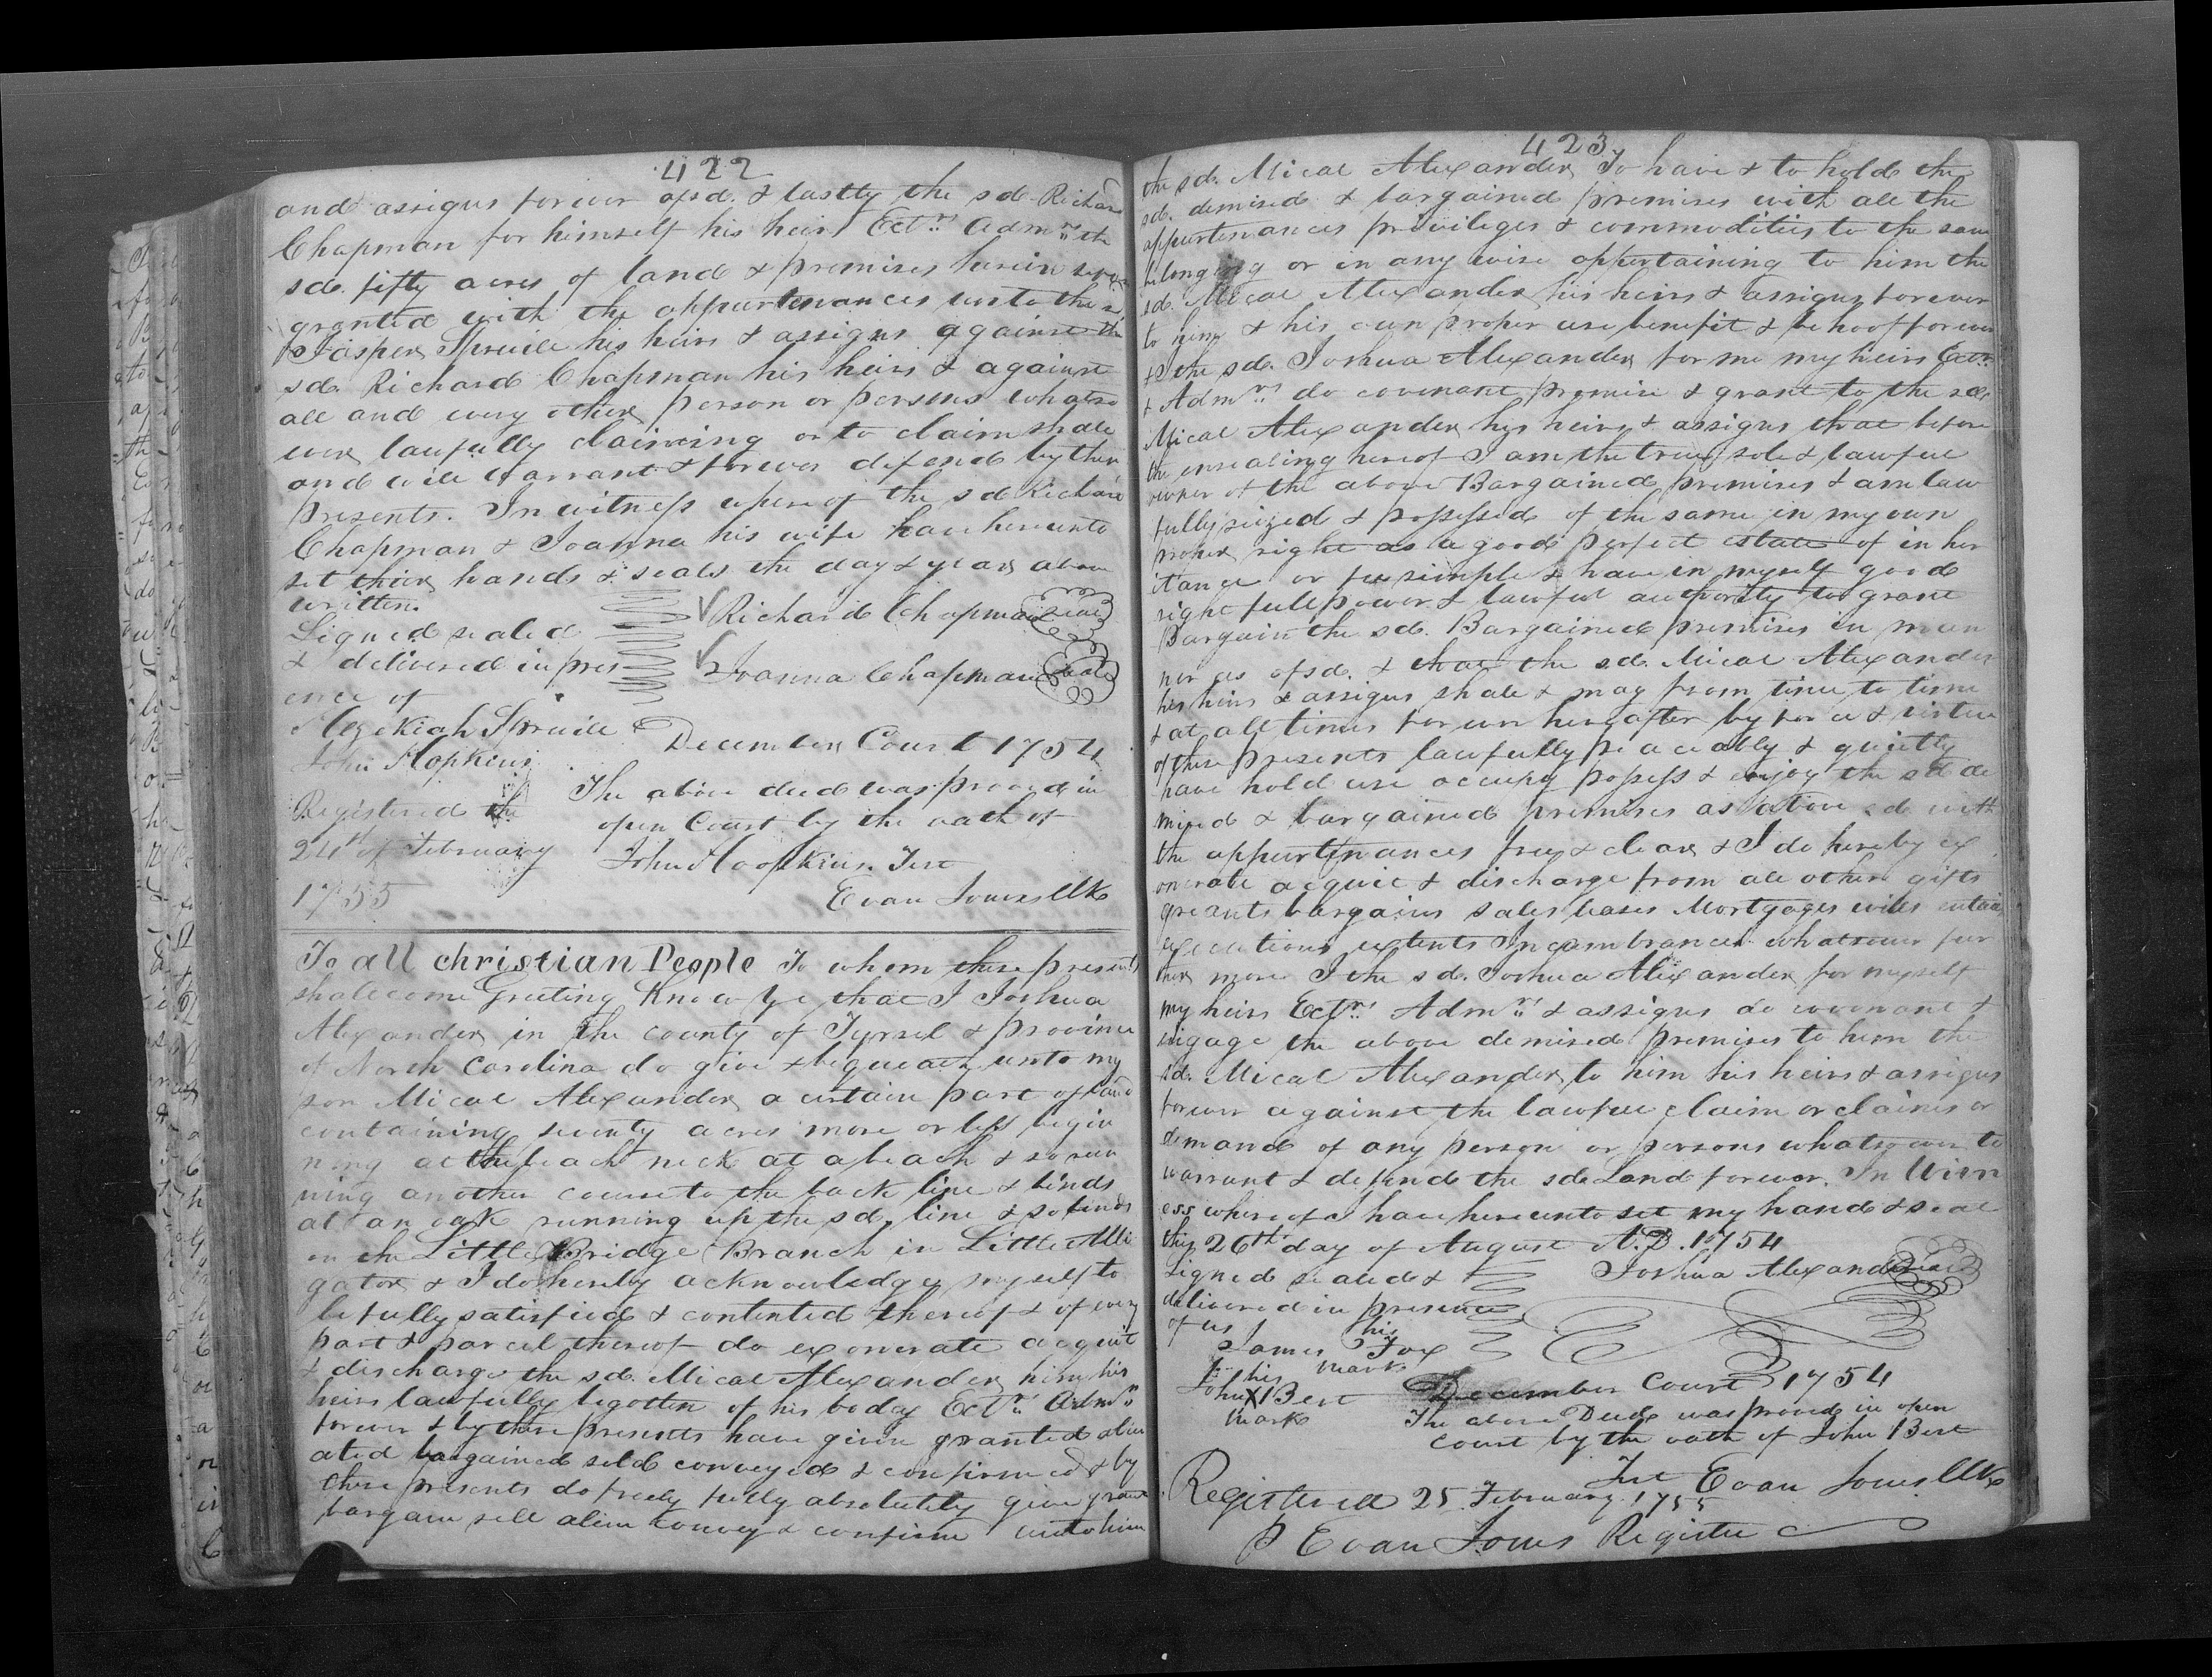 422
and assigns forever afsd. & lastly the sd. Richard
Chapman for himself his heirs Ectrs. Admrs. the
sd. fifty acres of land & premises herein
granted with the appurtenances unto the sd.
Jasper Spruill his heirs & assigns against the
sd. Richard Chapman his heirs & against
all and every other person or persons whatso
ever lawfully claiming or to claim shall
and will Warrant & forever defend by these
presents. In witness whereof the sd Richard
Chapman & Joanna his wife have hereunto
set their hands & seals the day & year above
written.
Signed sealed
& delivered in pres
ence of
Richard Chapman seal
Joanna Chapman seal
Hezekiah Spruill
John Hopkins
December Court 1754
The above deed was proved in
open Court by the oath of
John Hoopkins. Test
Evan Jones Clk
Registered the
24th of February
1755
To all christian People To whom these presents
shall come Greeting Know Ye that I Joshua
Alexander in the county of Tyrrel & province
of North Carolina do give & bequeath unto my
son Mical Alexander a certain part of land
containing seventy acres more or less begin
ning at the beach neck at a beach & so run
ning another course to the back line & binds
at an oak running up the sd. line & so binds
on the Little Bridge Branch in Little Alli
gator & I do hereby acknowledge myself to
be fully satisfied & contented thereof & of every
part & parcel thereof do exonerate acquit
& discharge the sd. Mical Alexander him his
heirs lawfully begotten of his boday Ectrs. Admrs
forever & by these presents have given granted alien
ated bargained sold conveyed & confirmed & by
these presents do freely fully absolutely give grant
bargain sell alien convey & confirm unto him
423
the sd. Mical Alexander To have & to hold the
sd. demised & bargained premises with all the
appurtenances privileges & commodities to the same
belonging or in any wise appertaining to him the
sd. Mical Alexander his heirs & assigns forever
to him & his own proper use benefit & behoof forever
& I the sd. Joshua Alexander for me my heirs Ectrs.
& Admrs. do covenant promise & grant to the sd.
Mical Alexander his heirs & assigns that before
the ensealing hereof I am the true, sole & lawful
owner of the above Bargained premises & am law
fully seized & possessed of the same in my own
proper right as a good perfect estate of inher
itance or fee simple & have in myself good
right full power & lawful authority to grant
Bargain the sd. Bargained premises in man
ner as afsd. & that the sd. Mical Alexander
his heirs & assigns shall & may from time to time
& at all times forever hereafter by force & virtue
of these presents lawfully peaceably & quietly
have hold use occupy possess & enjoy the sd de
mised & bargained premises as above sd with
the appurtenances free & clear & I do hereby ex
onerate acquit & discharge from all other gifts
greants bargains sales leases Mortgages wills entails
executions extents Incumbrances whatsoever fur
ther more I the sd. Joshua Alexander for myself
my heirs Ectrs. Admrs. & assigns do covenant &
engage the above demised premises to him the
sd. Mical Alexander to him his heirs & assigns
forever against the lawful claim or claims or
demand of any person or persons whatsoever to
warrant & defend the sd Land forever. In Witn
ess whereof I have hereunto set my hand & seal
this 26th day of August A.D. 1754
Signed sealed &
delivered in presence
of us
Joshua Alexander seal
his
James Fox
mark
his
John X Best
mark
December Court 1754
The above Deed was proved in open
court by the oath of John Best
Test Evan Jones Clk
Registered 25 February 1755
P Evan Jones Register